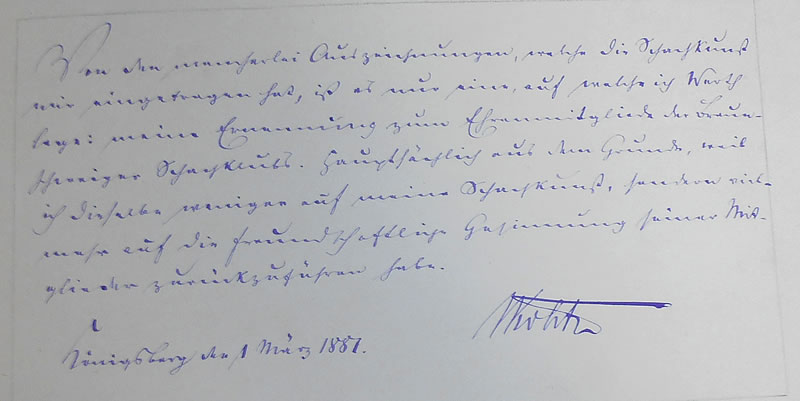 Von den mancherlei Auszeichnungen, welche die Schachkunst
mir eingetragen hat, ist es nur eine, auf welche ich Werth
lege: meine Ernennung zum Ehrenmitgliede des Braun-
schweiger Schachklubs. Hauptsächlich aus dem Grunde, weil
ich dieselbe weniger auf meine Schachkunst, sondern viel-
mehr auf die freundschaftliche Gesinnung seiner Mit-
glieder zurückzuführen habe.
Königsberg den 1 März 1881.